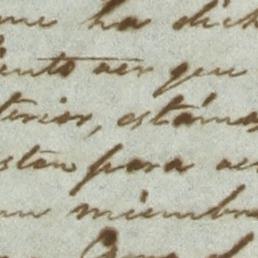 me ha dich
ento ver que
terior, estámos
stan para ve
un miembro